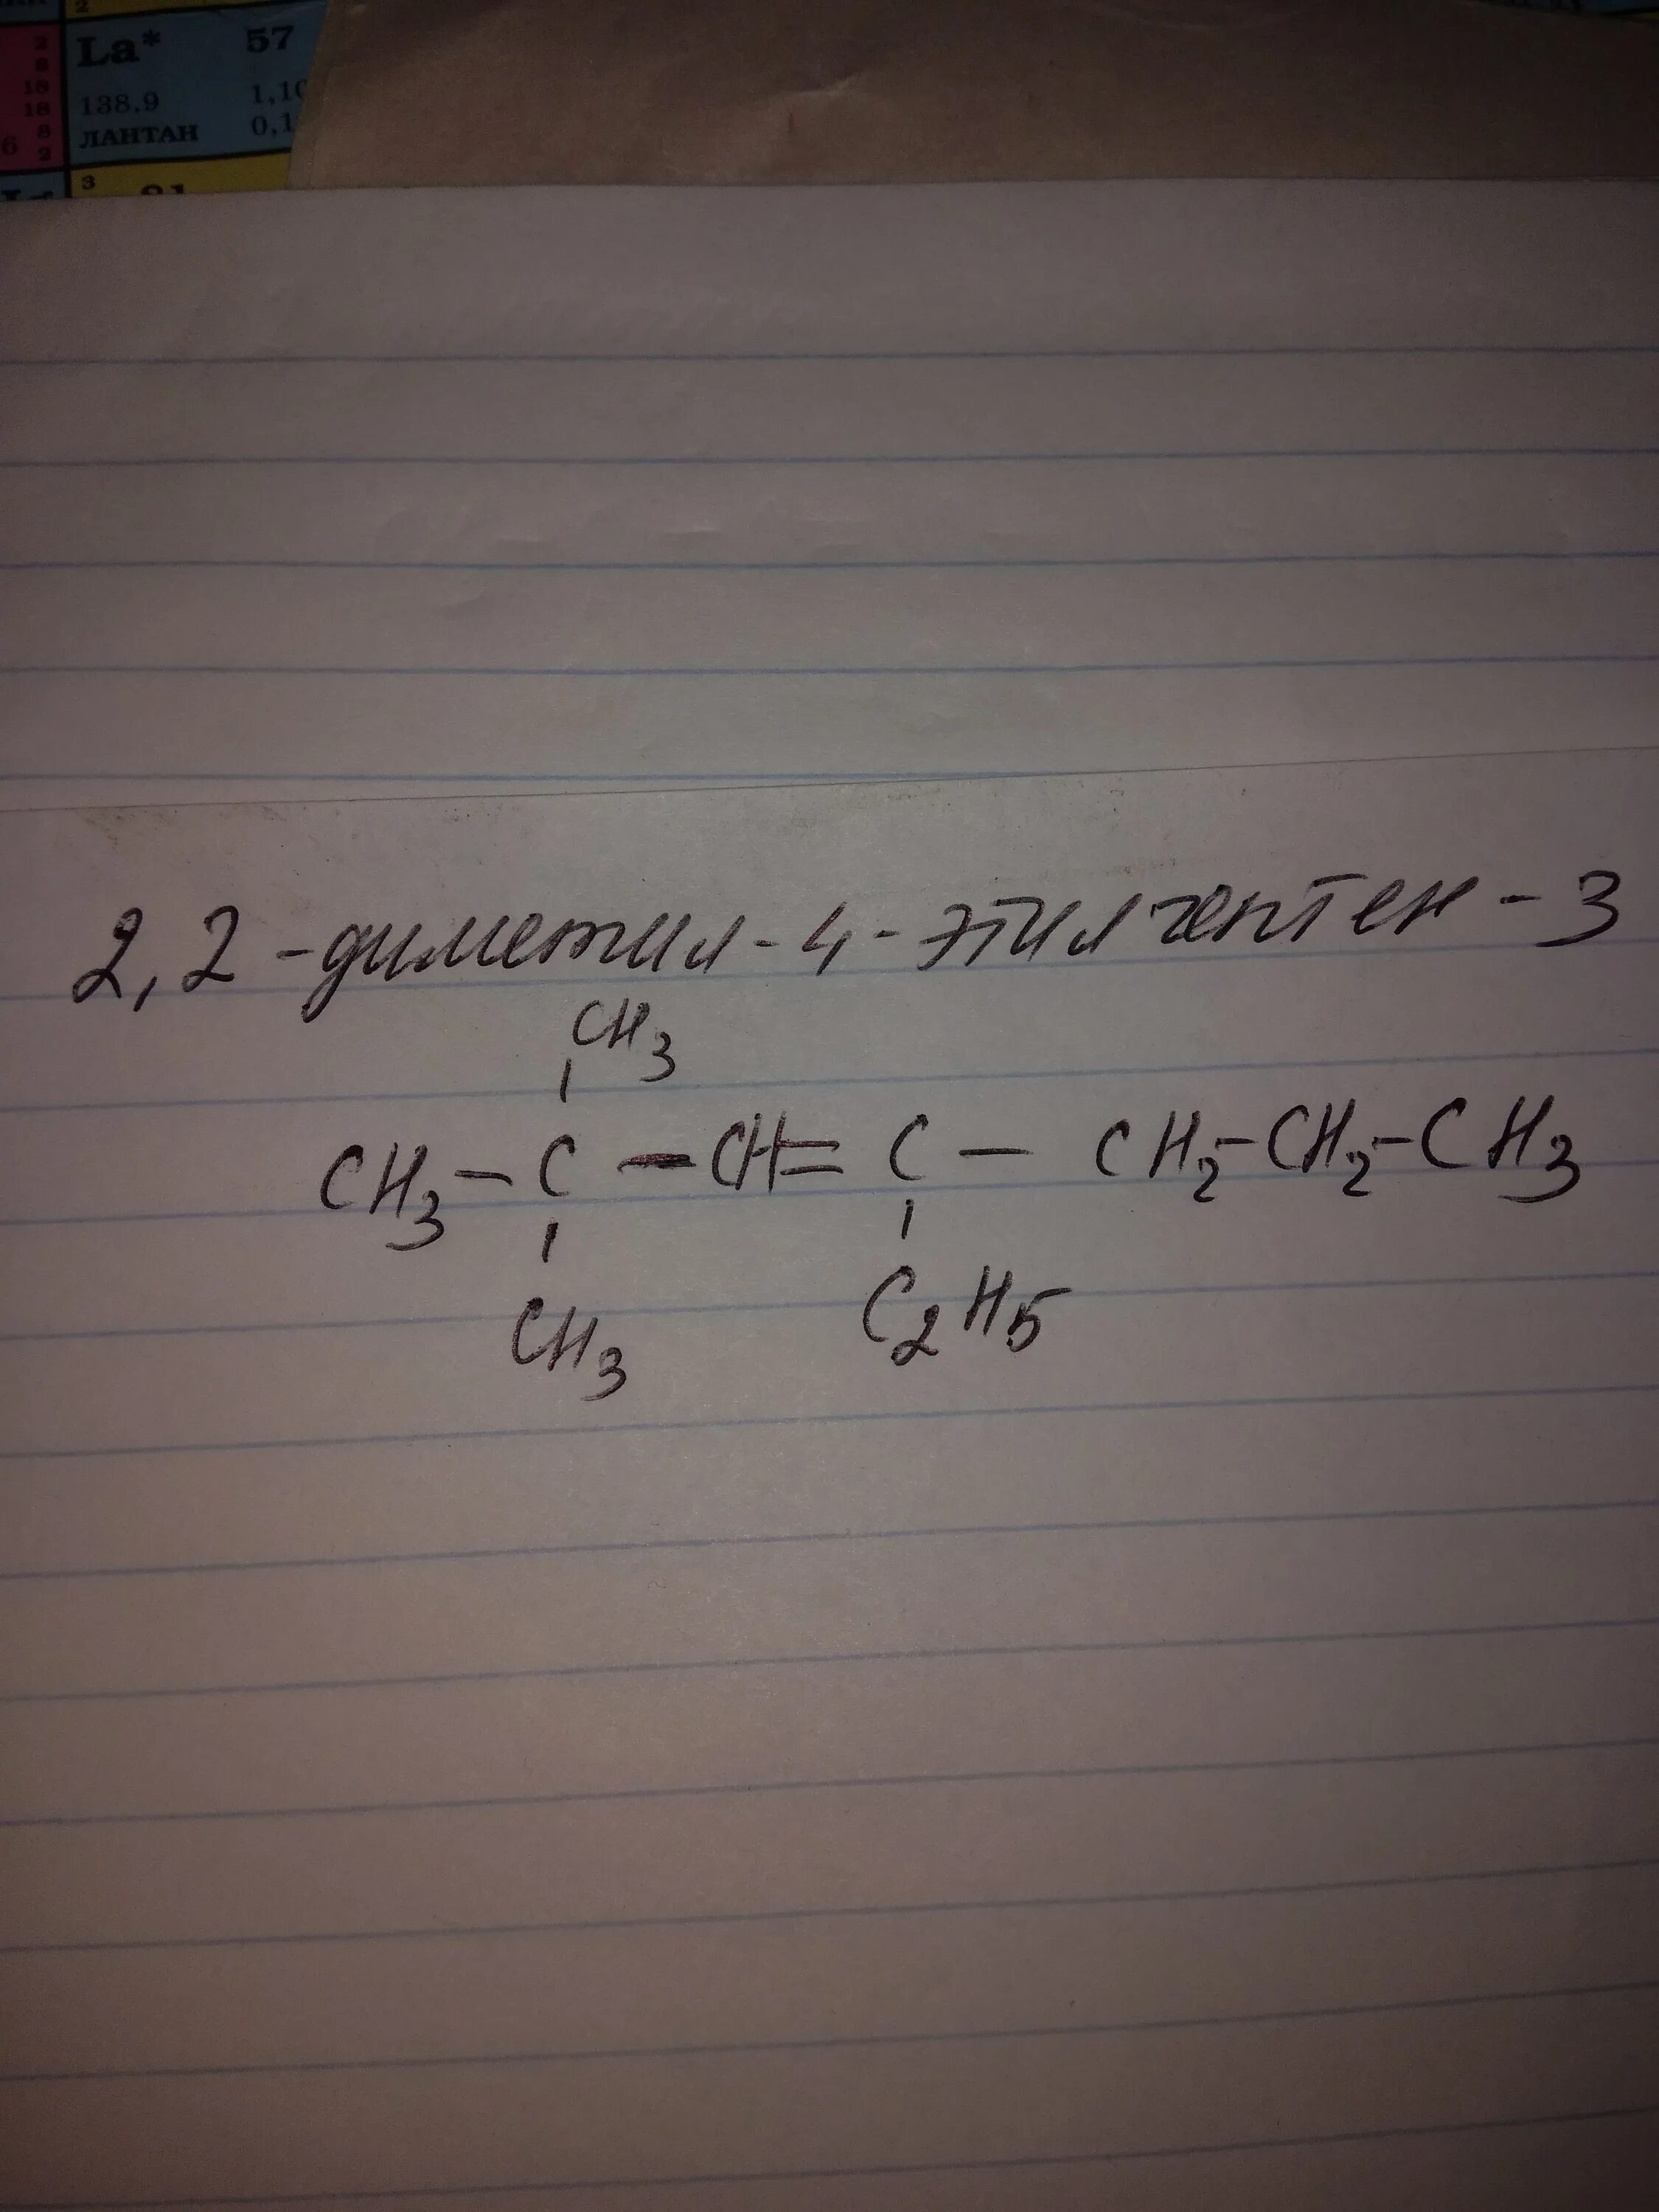 2
2
8
18
18
8
2
6
La* 57
138,9 1,10
ЛАНТАН 0,1
3 81
2,2-диметил-4-этилгептен-3
CH3
CH3-C-CH=C-CH2-CH2-CH3
CH3 C2H5